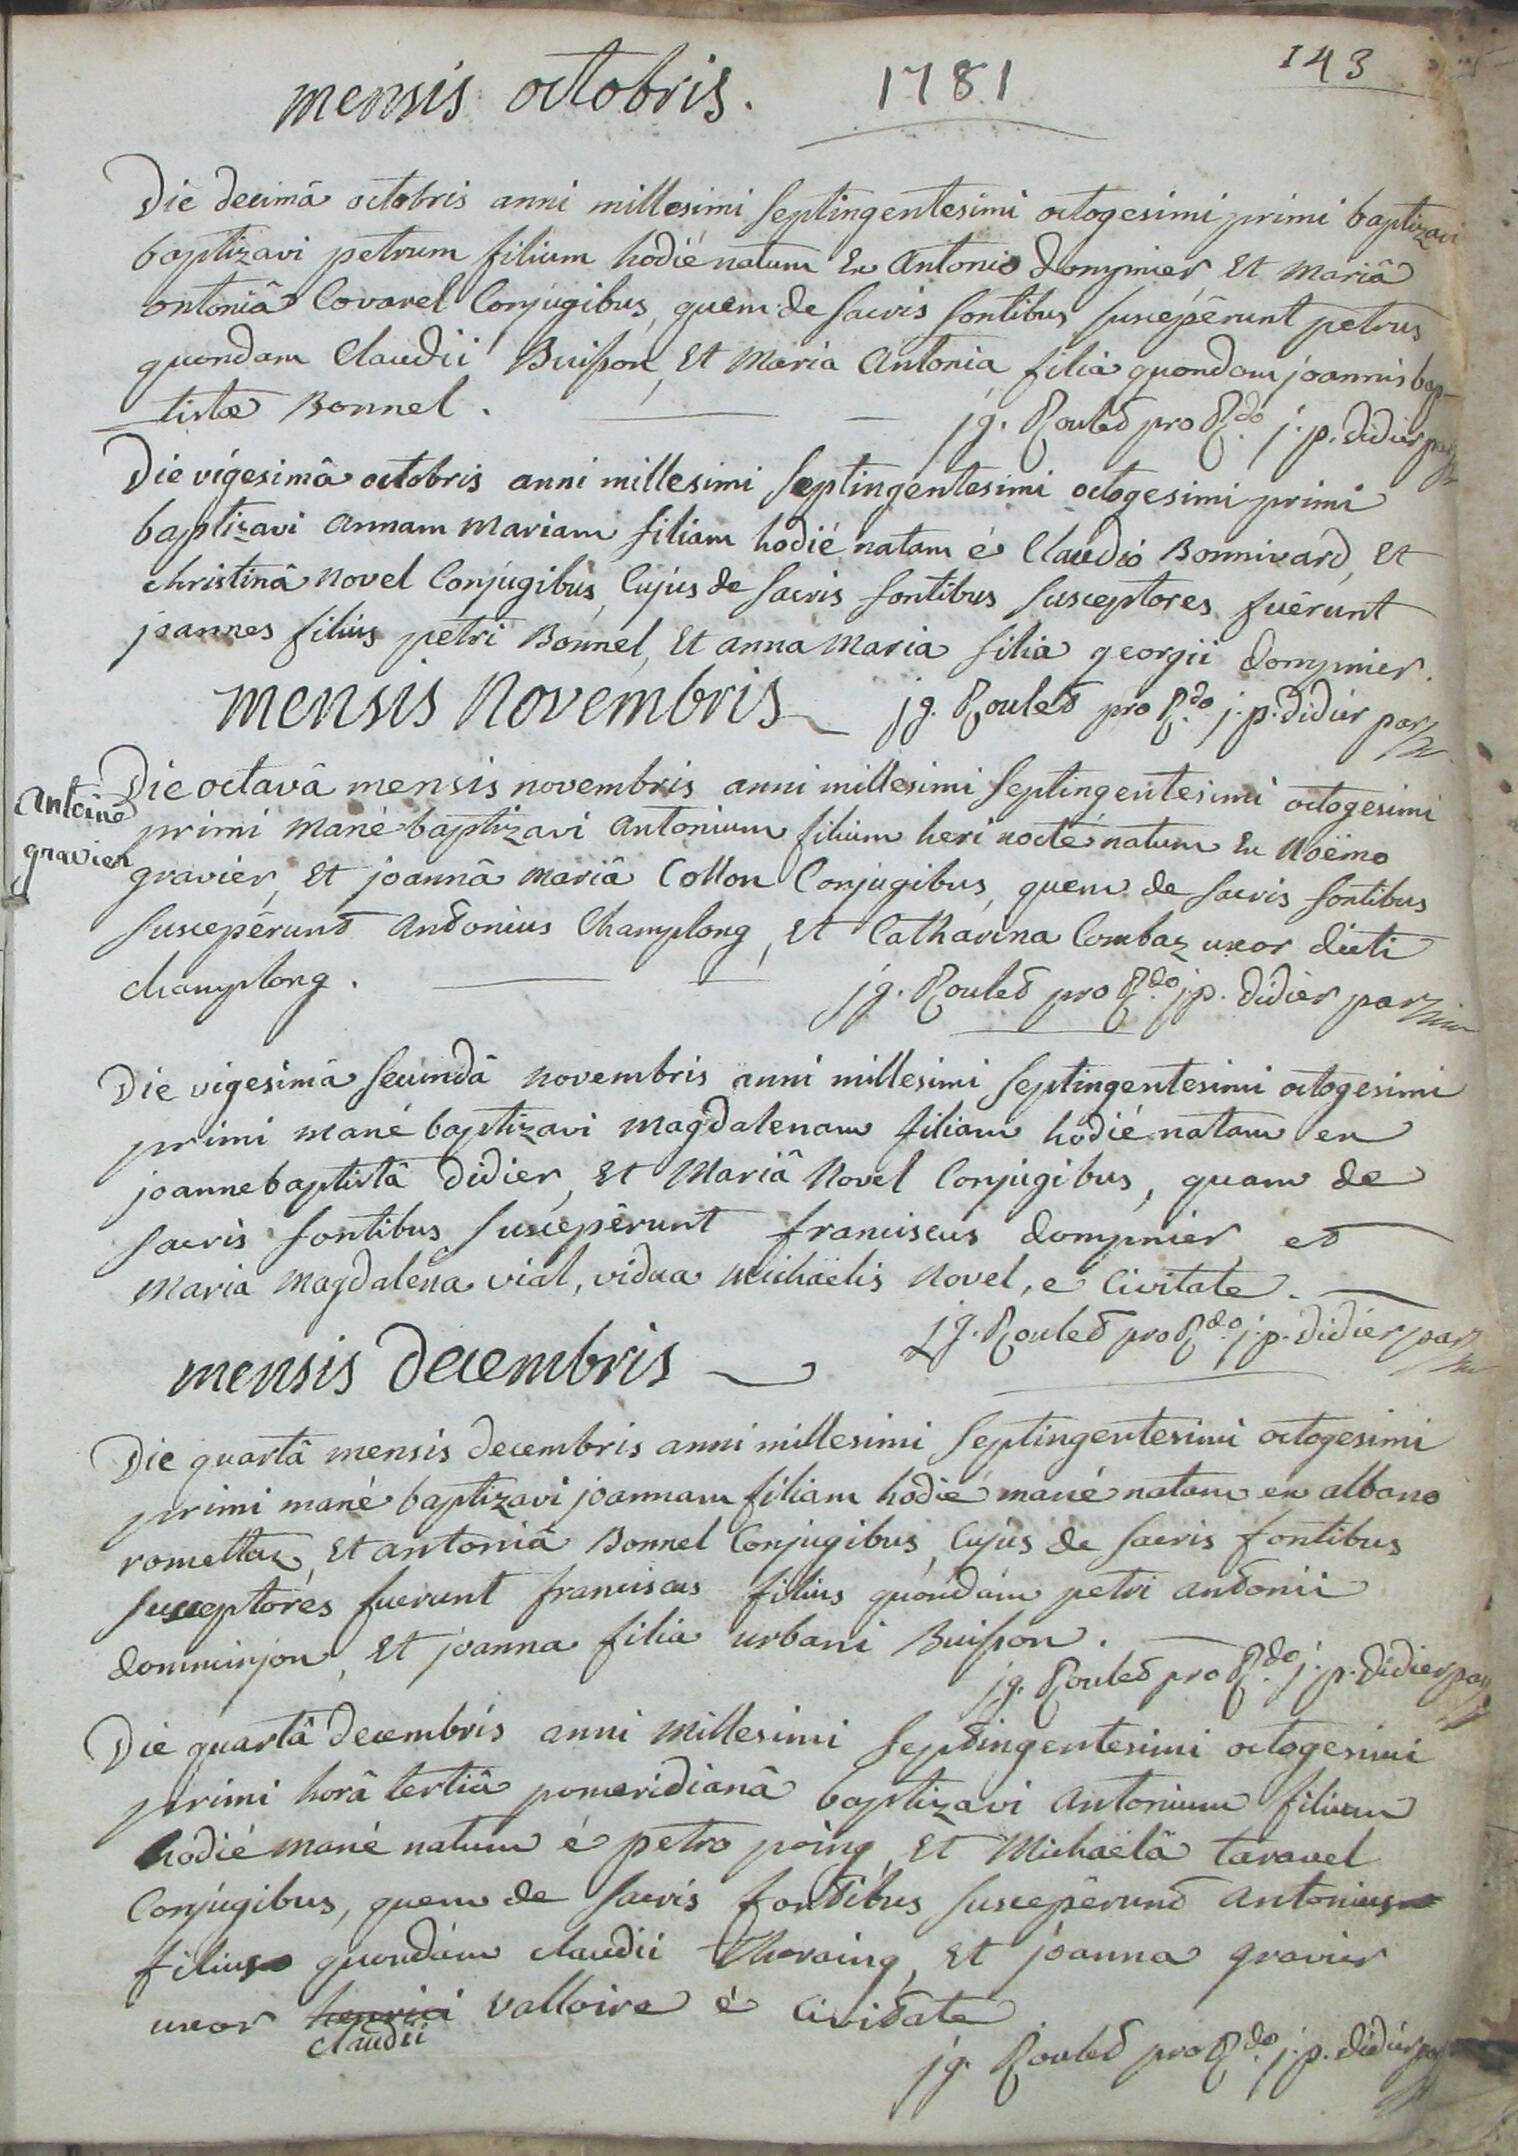 143
mensis octobris. 1781
Die decimâ octobris anni millesimi septingentesimi octogesimi primi baptizavi
baptizavi petrum filium hodié natum ex Antonio dompnier, et mariâ
antoniâ Covarel Conjugibus, quem de sacris fontibus suscepêrunt petrus
quondam Claudii Buisson, et maria Antonia filia quondam joannis bap-
tistæ Bonnel.
jg. Rouled pro R.do j. p. didier par
Die vigesimâ octobris anni millesimi septingentesimi octogesimi primi
baptizavi annam mariam filiam hodié natam é Claudio Bonnivard, et
christinâ novel Conjugibus, Cujus de sacris fontibus susceptores fuêrunt
joannes filius petri Bonnel, et anna maria filia georgii dompnier.
jg. Rouled pro R.do j. p. didier par
mensis novembris
Die octavâ mensis novembris anni millesimi septingentesimi octogesimi
antoine
gravier
primi mané baptizavi antonium filium heri nocte natum ex noëmo
gravier, et joannâ mariâ Collon Conjugibus, quem de sacris fontibus
suscepêrunt antonius Champlong, et Catharina Combaz uxor dicti
champlong.
jg. Rouled pro R.do j. p. didier par
Die vigesimâ secundâ novembris anni millesimi septingentesimi octogesimi
primi mané baptizavi magdalenam filiam hodié natam ex
joanne baptistâ didier, et mariâ novel Conjugibus, quam de
sacris fontibus suscepêrunt franciscus dompnier et
maria magdalena vial, vidua michaëlis novel, e Civitate.
jg. Rouled pro R.do j. p. didier par
mensis decembris
Die quartâ mensis decembris anni millesimi septingentesimi octogesimi
primi mané baptizavi joannam filiam hodié mané natam ex albano
romettaz, et antoniâ Bonnel Conjugibus, Cujus de sacris fontibus
susceptores fuerunt franciscus filius quondam petri antonii
domminjon, et joanna filia urbani Buisson.
jg. Rouled pro R.do j. p. didier par
Die quartâ decembris anni millesimi septingentesimi octogesimi
primi horâ tertiâ pomeridianâ baptizavi antonium filium
hodié mané natum é petro poing, et michaëlâ taravel
Conjugibus, quem de sacris fontibus suscepêrund antonius
filius quondam claudii Thoraing, et joanna gravier
uxor henrici valloire é Cividate
claudii
jg. Rouled pro R.do j. p. didier par